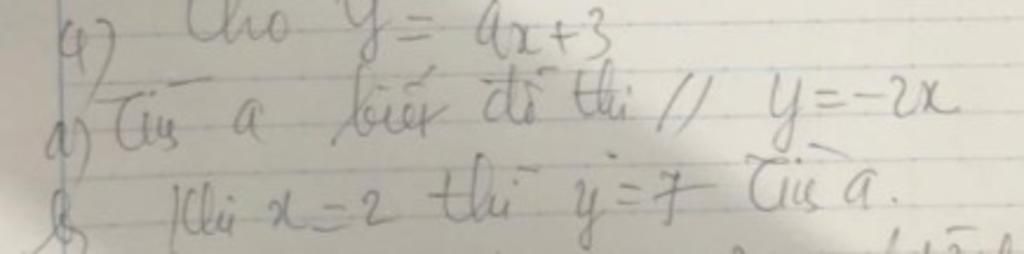 4) Cho y = ax+3
a) Tìm a biết đồ thị // y=-2x
b Khi x=2 thì y=7 Tìm a.